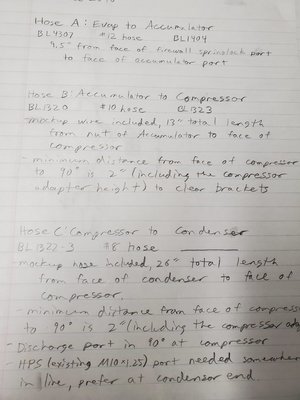 Hose A: Evap to Accumulator
BL4307 #12 hose BL1404
9.5" from face of firewall springlock port
to face of accumulator port
Hose B: Accumulator to Compressor
BL1320 #10 hose BL1323
- mockup wire included, 13" total length
from nut of Accumulator to face of
compressor
- minimum distance from face of compressor
to 90° is 2" (including the compressor
adapter height) to clear brackets
Hose C: Compressor to Condenser
BL1322-3 #8 hose
- mockup hose included, 26" total length
from face of condenser to face of
compressor.
- minimum distance from face of compress
to 90° is 2" (including the compressor ada
- Discharge port in 90° at compressor
- HPS (existing M10x1.25) port needed somewhere
in line, prefer at condensor end.